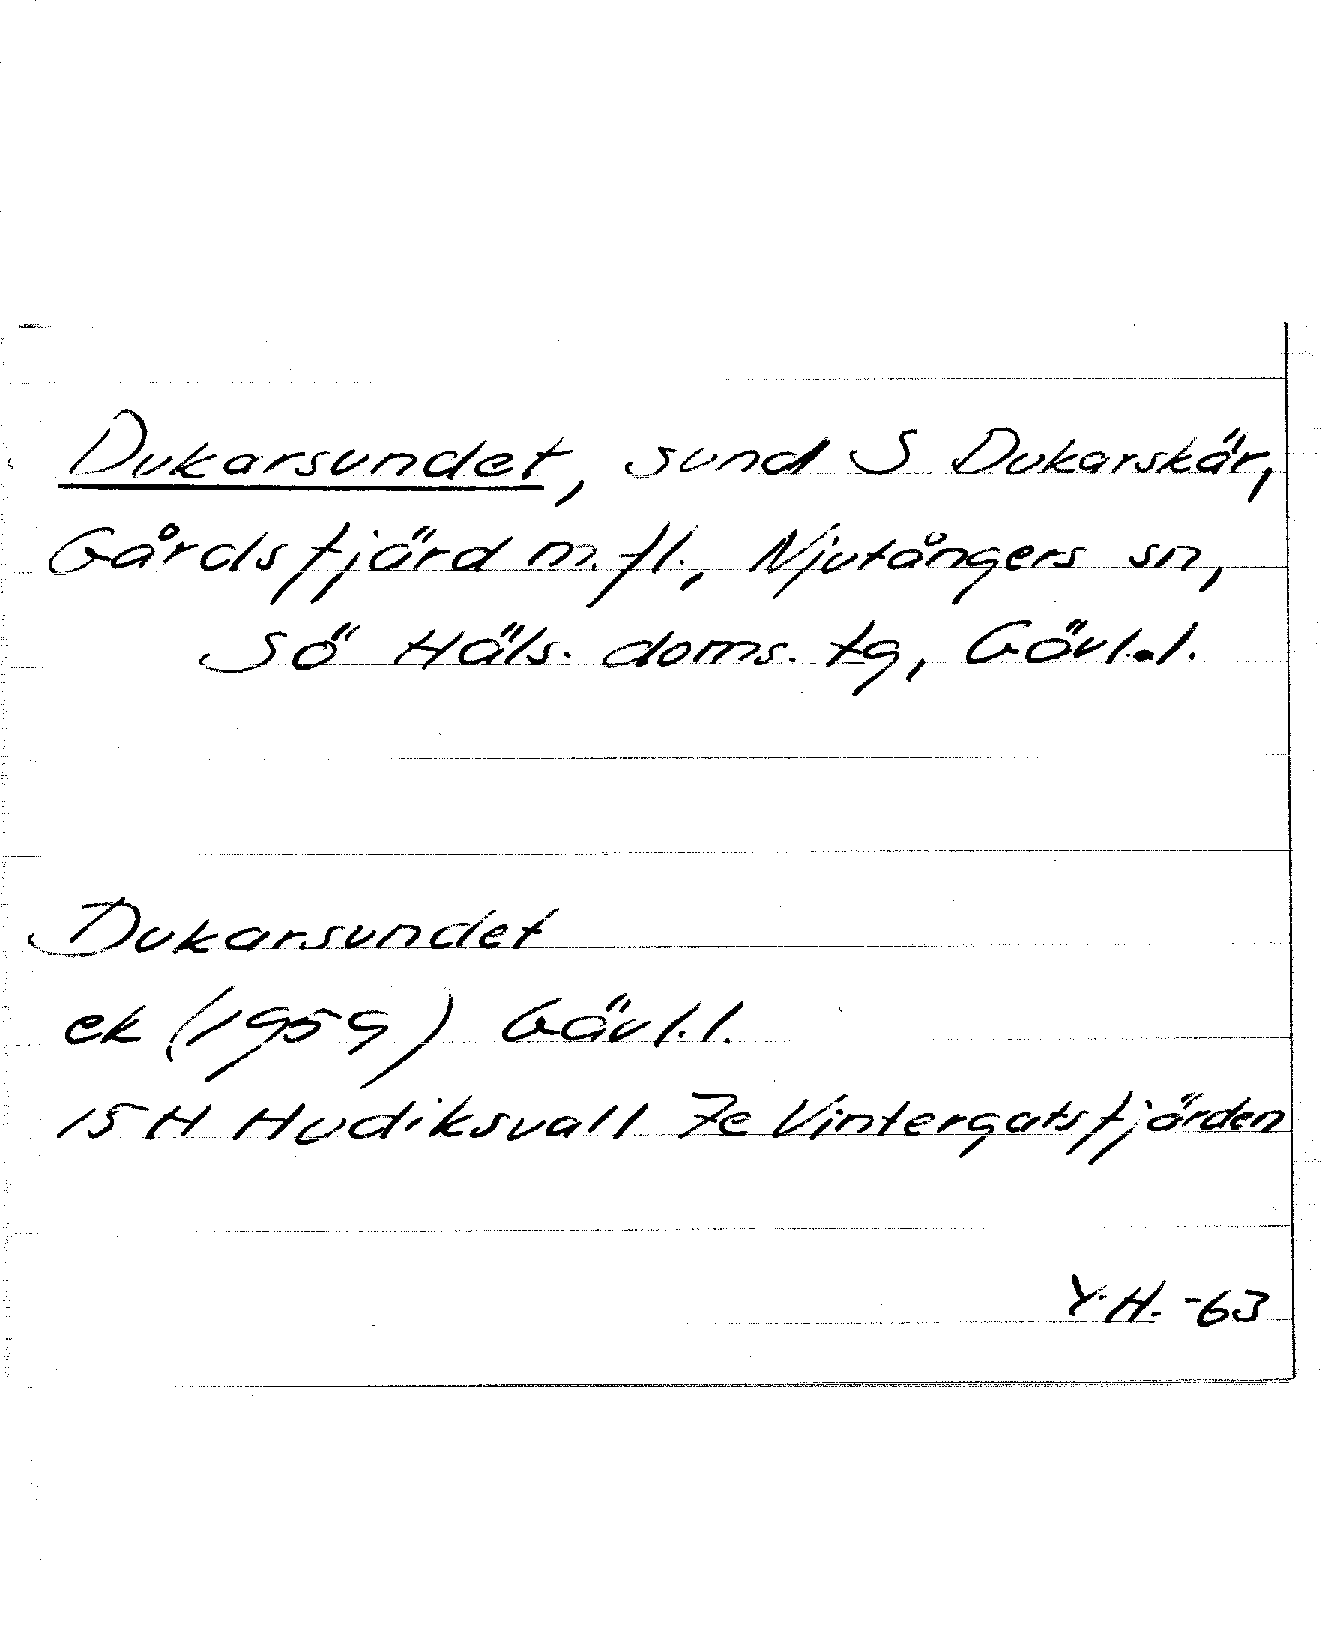 Dukarsundet, sund S Dukarskär,
Gårdsfjärd m.fl., Njutångers sn,
Sö Häls. doms. tg, Gävl.l.
Dukarsundet
ek (1959) Gävl.l.
15H Hudiksvall 7e Vintergatsfjärden
Y.H. -63